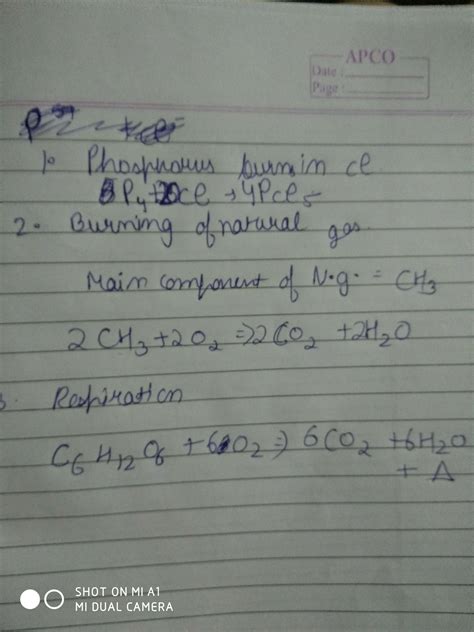 APCO
Date :
Page :
1. Phosphorus burn in Cl
P₄+20Cl → 4PCl₅
2. Burning of natural gas.
Main component of N.g. = CH₃
2CH₃+2O₂ ⇒2CO₂ +2H₂O
3. Respiration
C₆H₁₂O₆ +6O₂ ⇒ 6CO₂ +6H₂O
+ Δ
SHOT ON MI A1
MI DUAL CAMERA